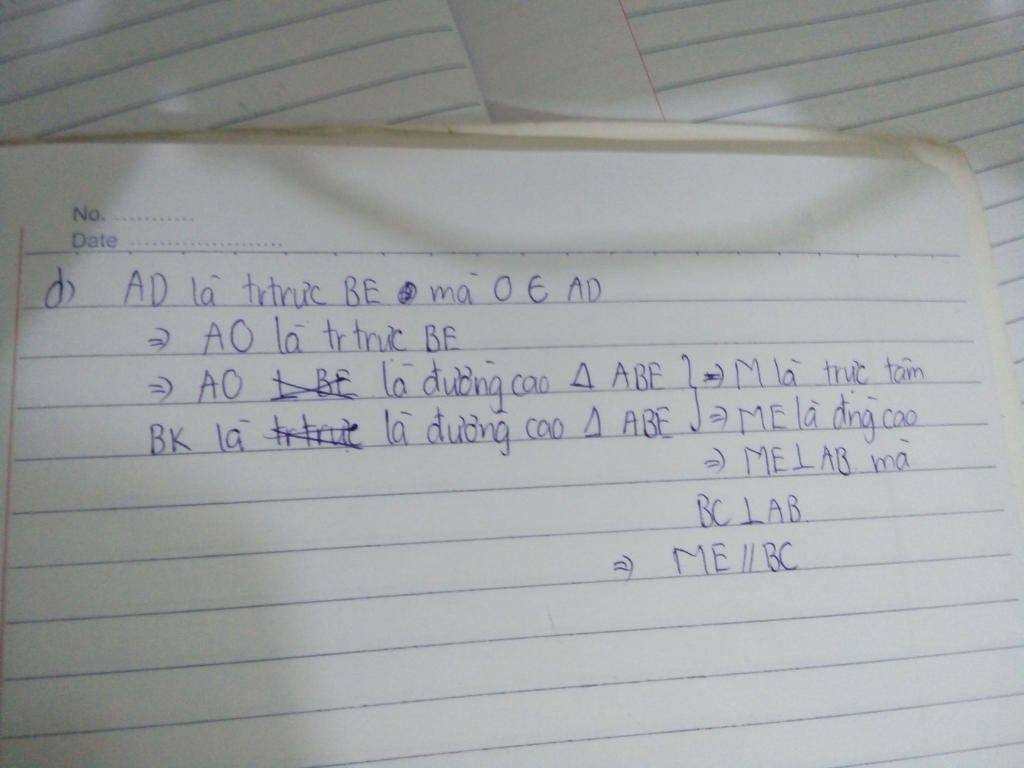 No. ............
Date ......................
d) AD là trtrực BE mà O ∈ AD
⇒ AO là trtrực BE
⇒ AO ⊥ BE là đường cao Δ ABE } ⇒ M là trực tâm
BK là trtrực là đường cao Δ ABE } ⇒ ME là đng cao
⇒ ME ⊥ AB mà
BC ⊥ AB
⇒ ME // BC